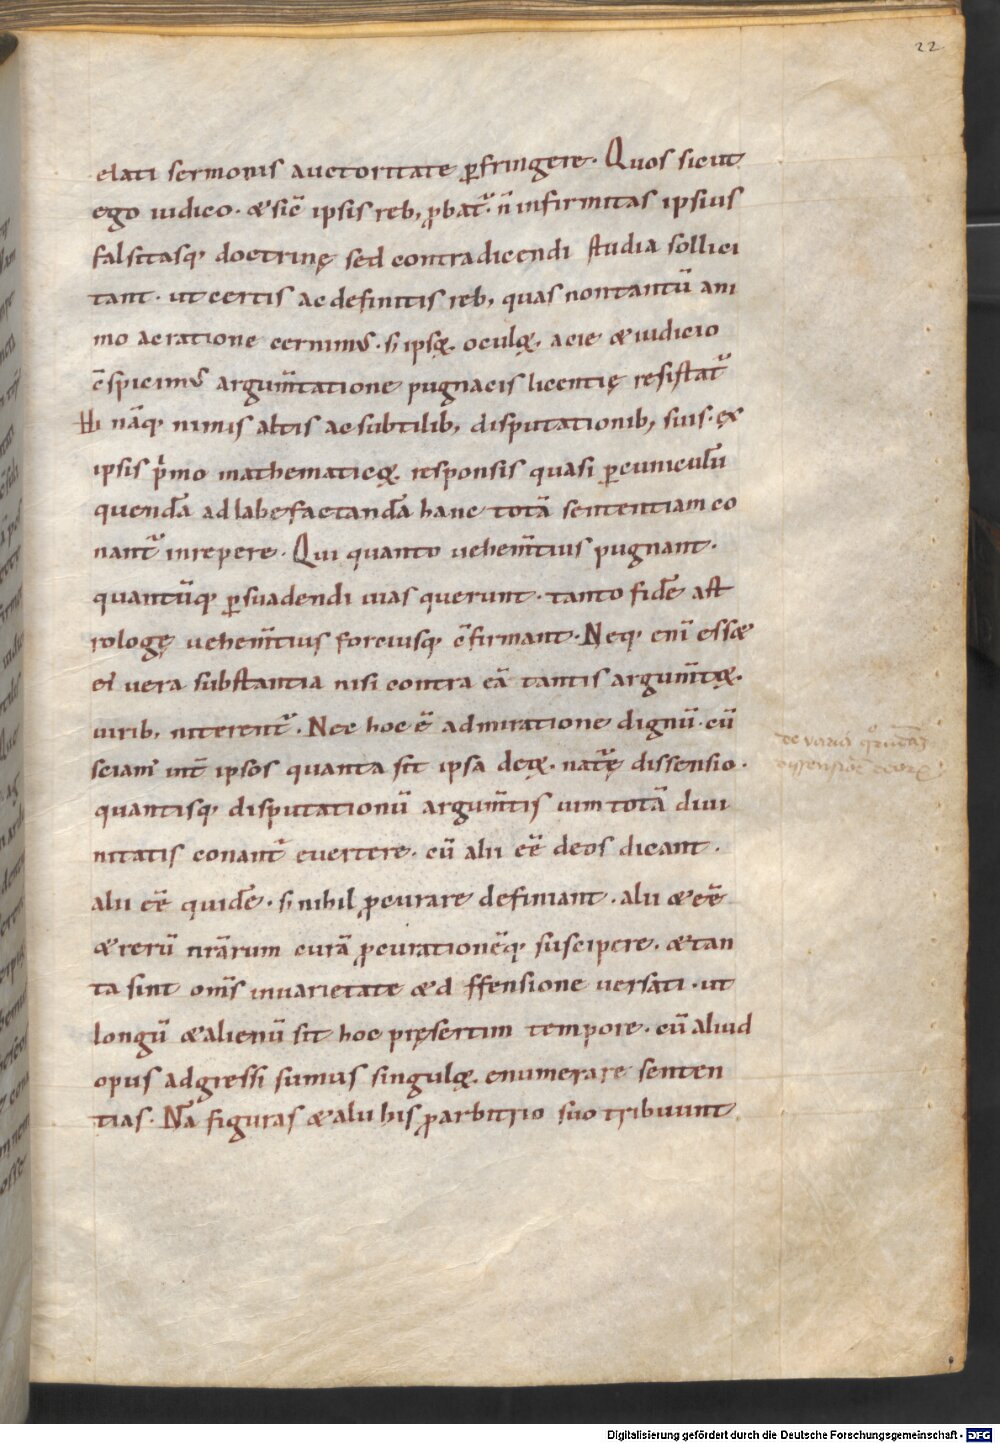 22
elati sermonis auctoritate ꝑfringere. Quos sicut
ego iudico. & sic̄ ipsis reb; ꝓbat᷑. n̄ infirmitas ipsius
falsitasq; doctrinę sed contradicendi studia sollici
tant. ut certis ac definitis reb; quas nontantū ani
mo ac ratione cernimꝰ. s; ipsoꝝ oculoꝝ acie & iudicio
c̄spicimꝰ argum̄tatione pugnacis licentię resistat᷑
Hi nāq; nimis altis ac subtilib; disputationib; suis. ex
ipsis p̄mo mathematicoꝝ responsis quasi ꝑ cuniculū
quendā ad labefactandā hanc totā sententiam co
nant᷑ inrepere. Qui quanto uehem̄tius pugnant.
quantūq; ꝑsuadendi uias querunt. tanto fidē ast
rologę uehem̄tius forciusq; c̄firmant. Neq; enī ess&
ei uera substantia nisi contra eā tantis argum̄toꝝ
uirib; niterent᷑. Nec hoc ē admiratione dignū. cū
sciam̄ int̄ ipsos quanta sit ipsa deoꝝ natu᷑ę dissensio.
quantisq; disputationū argum̄tis uim totā diui
nitatis conant᷑ euertere. cū alii ēē deos dicant.
alii ēē quidē. s; nihil ꝓcurare definiant. alii & ēē
& rerū nrārum curā ꝓcurationēq; suscipere. & tan
ta sint om̄s inuarietate & d ffensione uersati. ut
longū & alienū sit hoc pręsertim tempore. cū aliud
opus adgressi sumus singuloꝝ enumerare senten
tias. Nā figuras & alii his ꝓ arbitrio suo tribuunt
Digitalisierung gefördert durch die Deutsche Forschungsgemeinschaft - DFG